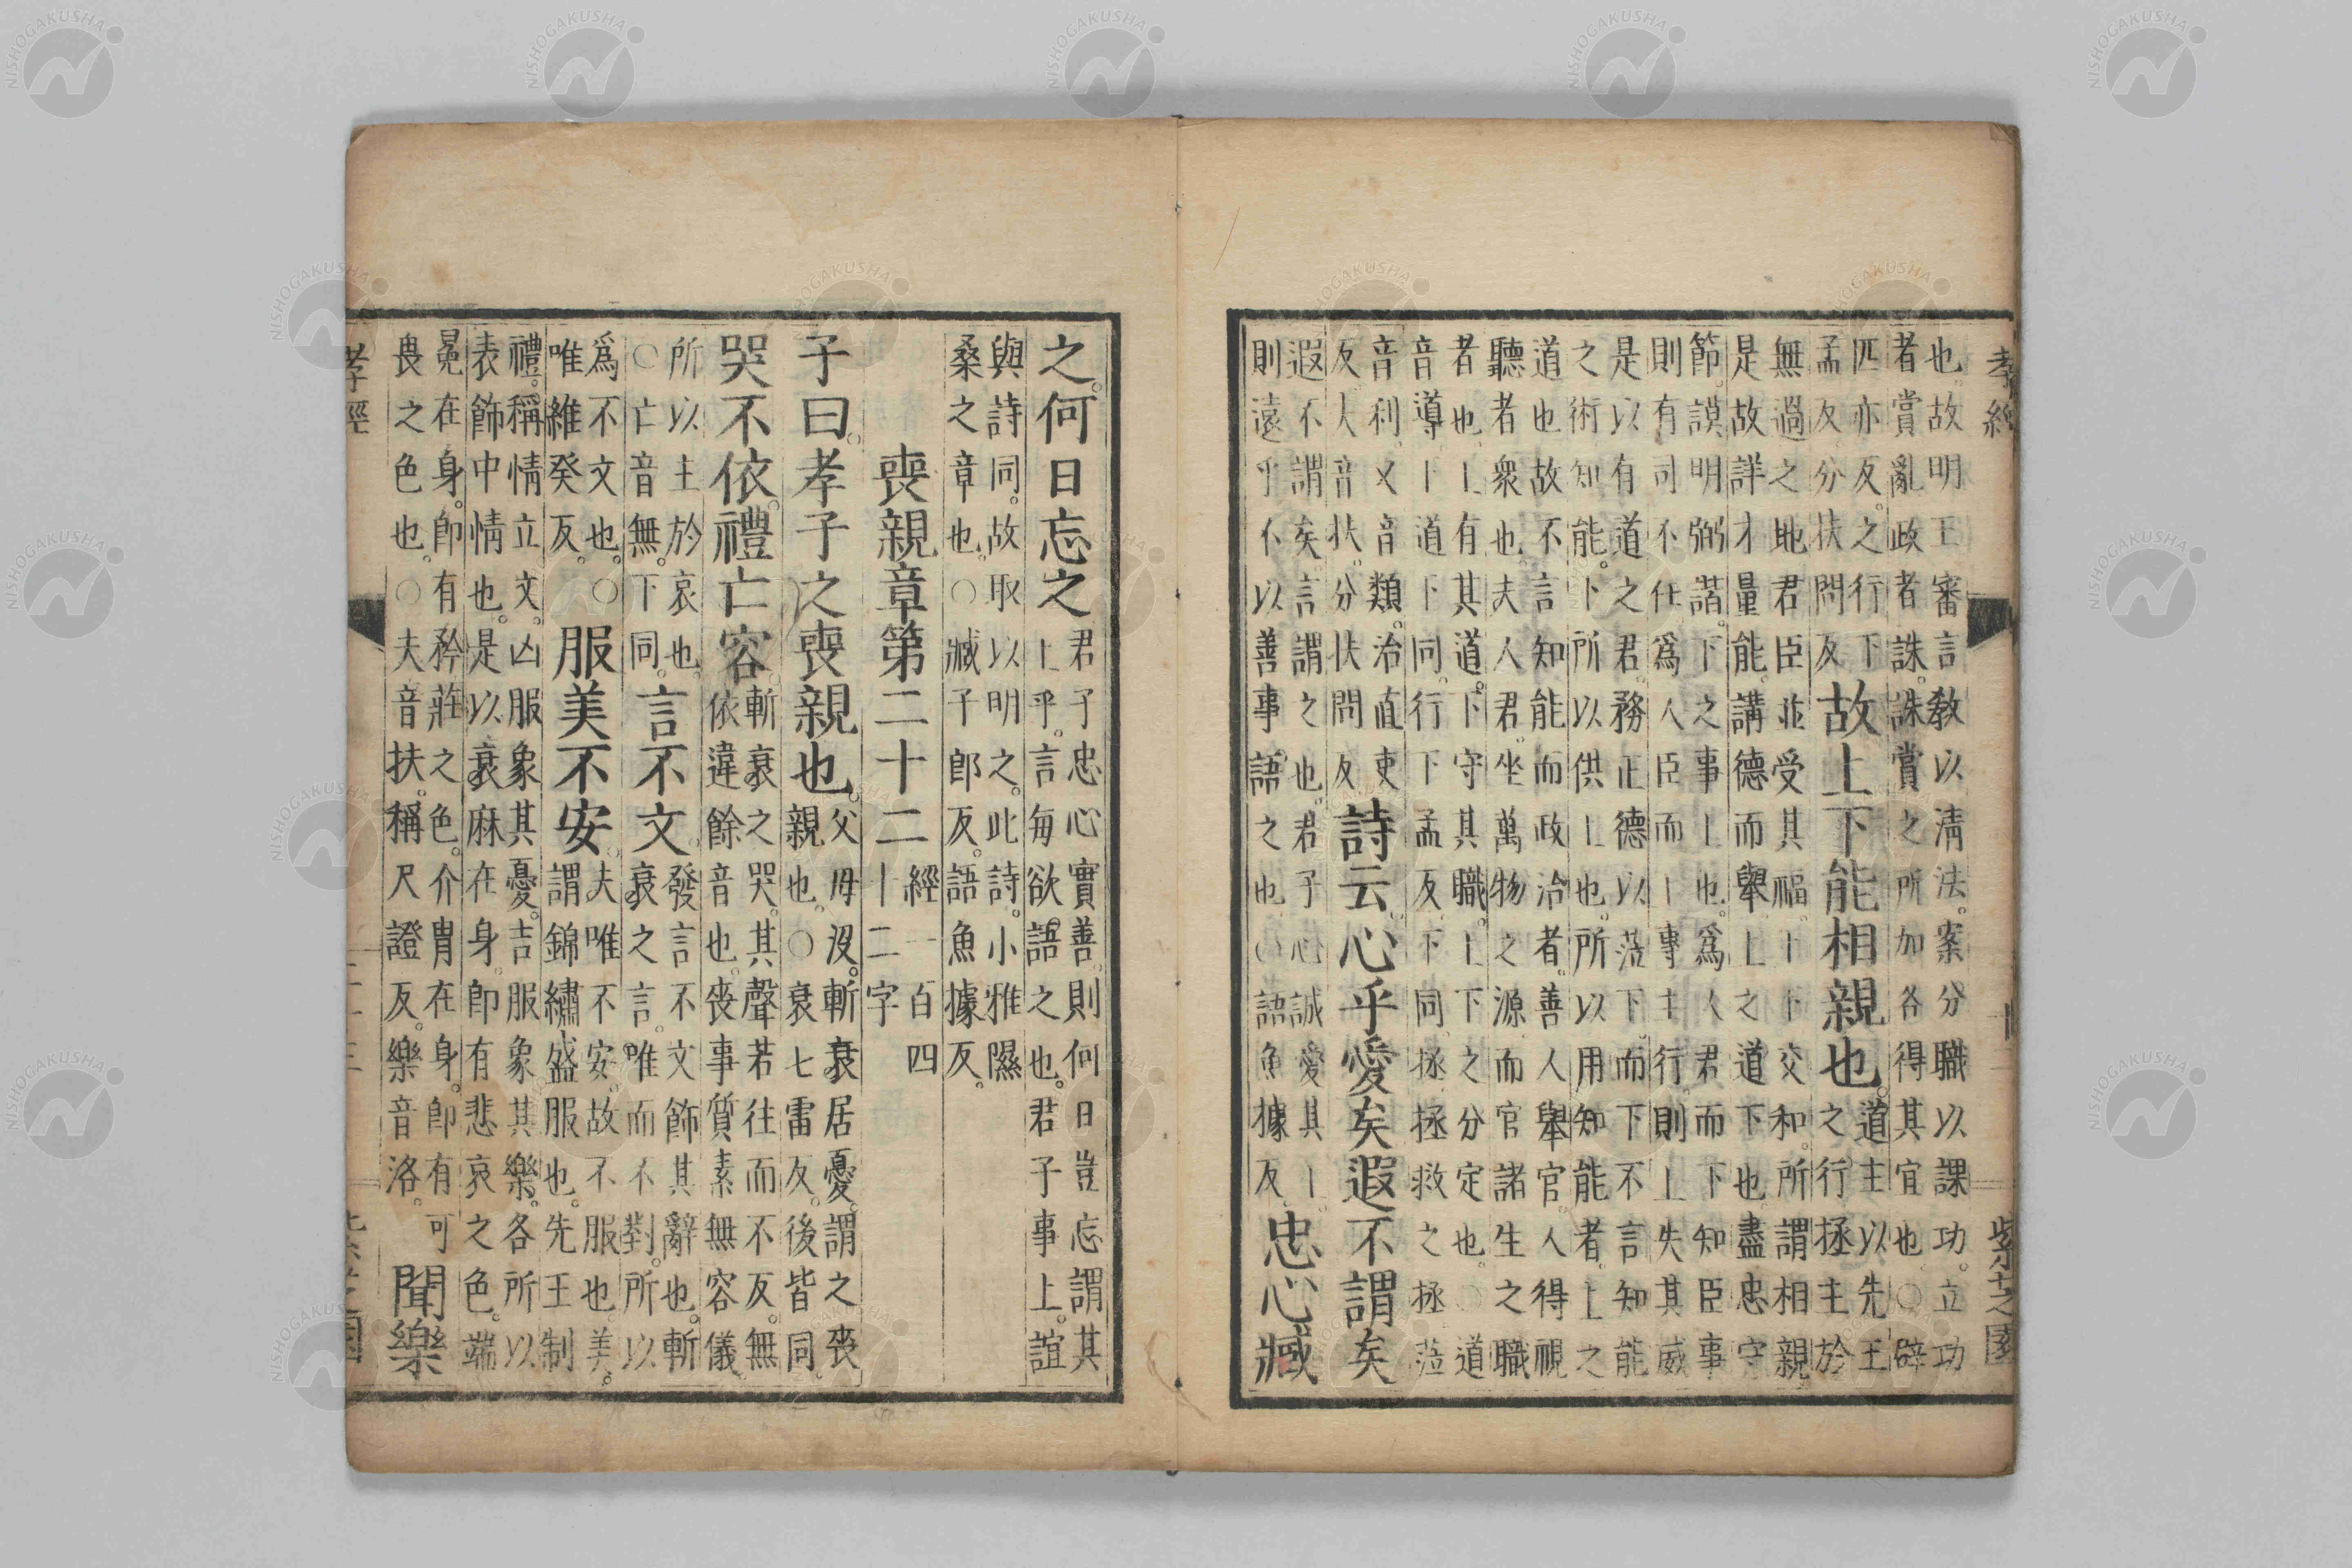 孝經
紫芝園
也。故明王審言教以清法。案分職以課功。立功
者賞亂政者誅。誅賞之所加各得其宜也。○辟
匹亦反。之行下
孟反。分扶問反
故上下能相親也。
道主以先王
之行拯主於
無過之地君臣並受其福。上下交和。所謂相親
是故詳才量能。講德而舉。上之道下也。盡忠守
節。謨明弼諧。下之事上也。爲人君而下知臣事
則有司不任爲人臣而上專主行。則上失其威
是以有道之君。務正德以涖下。而下不言知能
之術。知能。下所以供上也。所以用知能者。上之
道也。故不言知能而政治者。善人舉官人得視
聽者衆也。夫人君坐萬物之源而官諸生之職
者也。上有其道。下守其職。上下之分定也。○道
音導上道下同。行下孟反。下同拯拯救之拯涖
音利。又音類。治直吏
反大音扶分扶問反
詩云。心乎愛矣遐不謂矣
遐不謂矣言謂之也。君子心誠愛其上
則遠乎不以善事語之也。○語魚據反。
忠心臧
之。何日忘之
君子忠心實善。則何日豈忘謂其
上乎。言每欲語之也。君子事上。誼
與詩同。故取以明之。此詩。小雅隰
桑之章也。○臧子郎反。語魚據反。
喪親章第二十二
經一百四
十二字
子曰。孝子之喪親也。
父母沒。斬衰居憂。謂之喪
親也。○衰七雷反。後皆同。
哭不依。禮亡容。
斬衰之哭。其聲若往而不反。無
依違餘音也。喪事質素無容儀
所以主於哀也。
○亡音無。下同。
言不文。
發言不文飾其辭也。斬
衰之言。唯而不對。所以
爲不文也。○
唯維癸反。
服美不安。
夫唯不安。故不服也。美。
謂錦繡盛服也。先王制
禮。稱情立文。凶服象其憂。吉服象其樂。各所以
表飾中情也。是以衰麻在身。即有悲哀之色。端
冕在身。即有矜莊之色。介胄在身。即有可
畏之色也。○夫音扶。稱尺證反。樂音洛。
聞樂
孝經